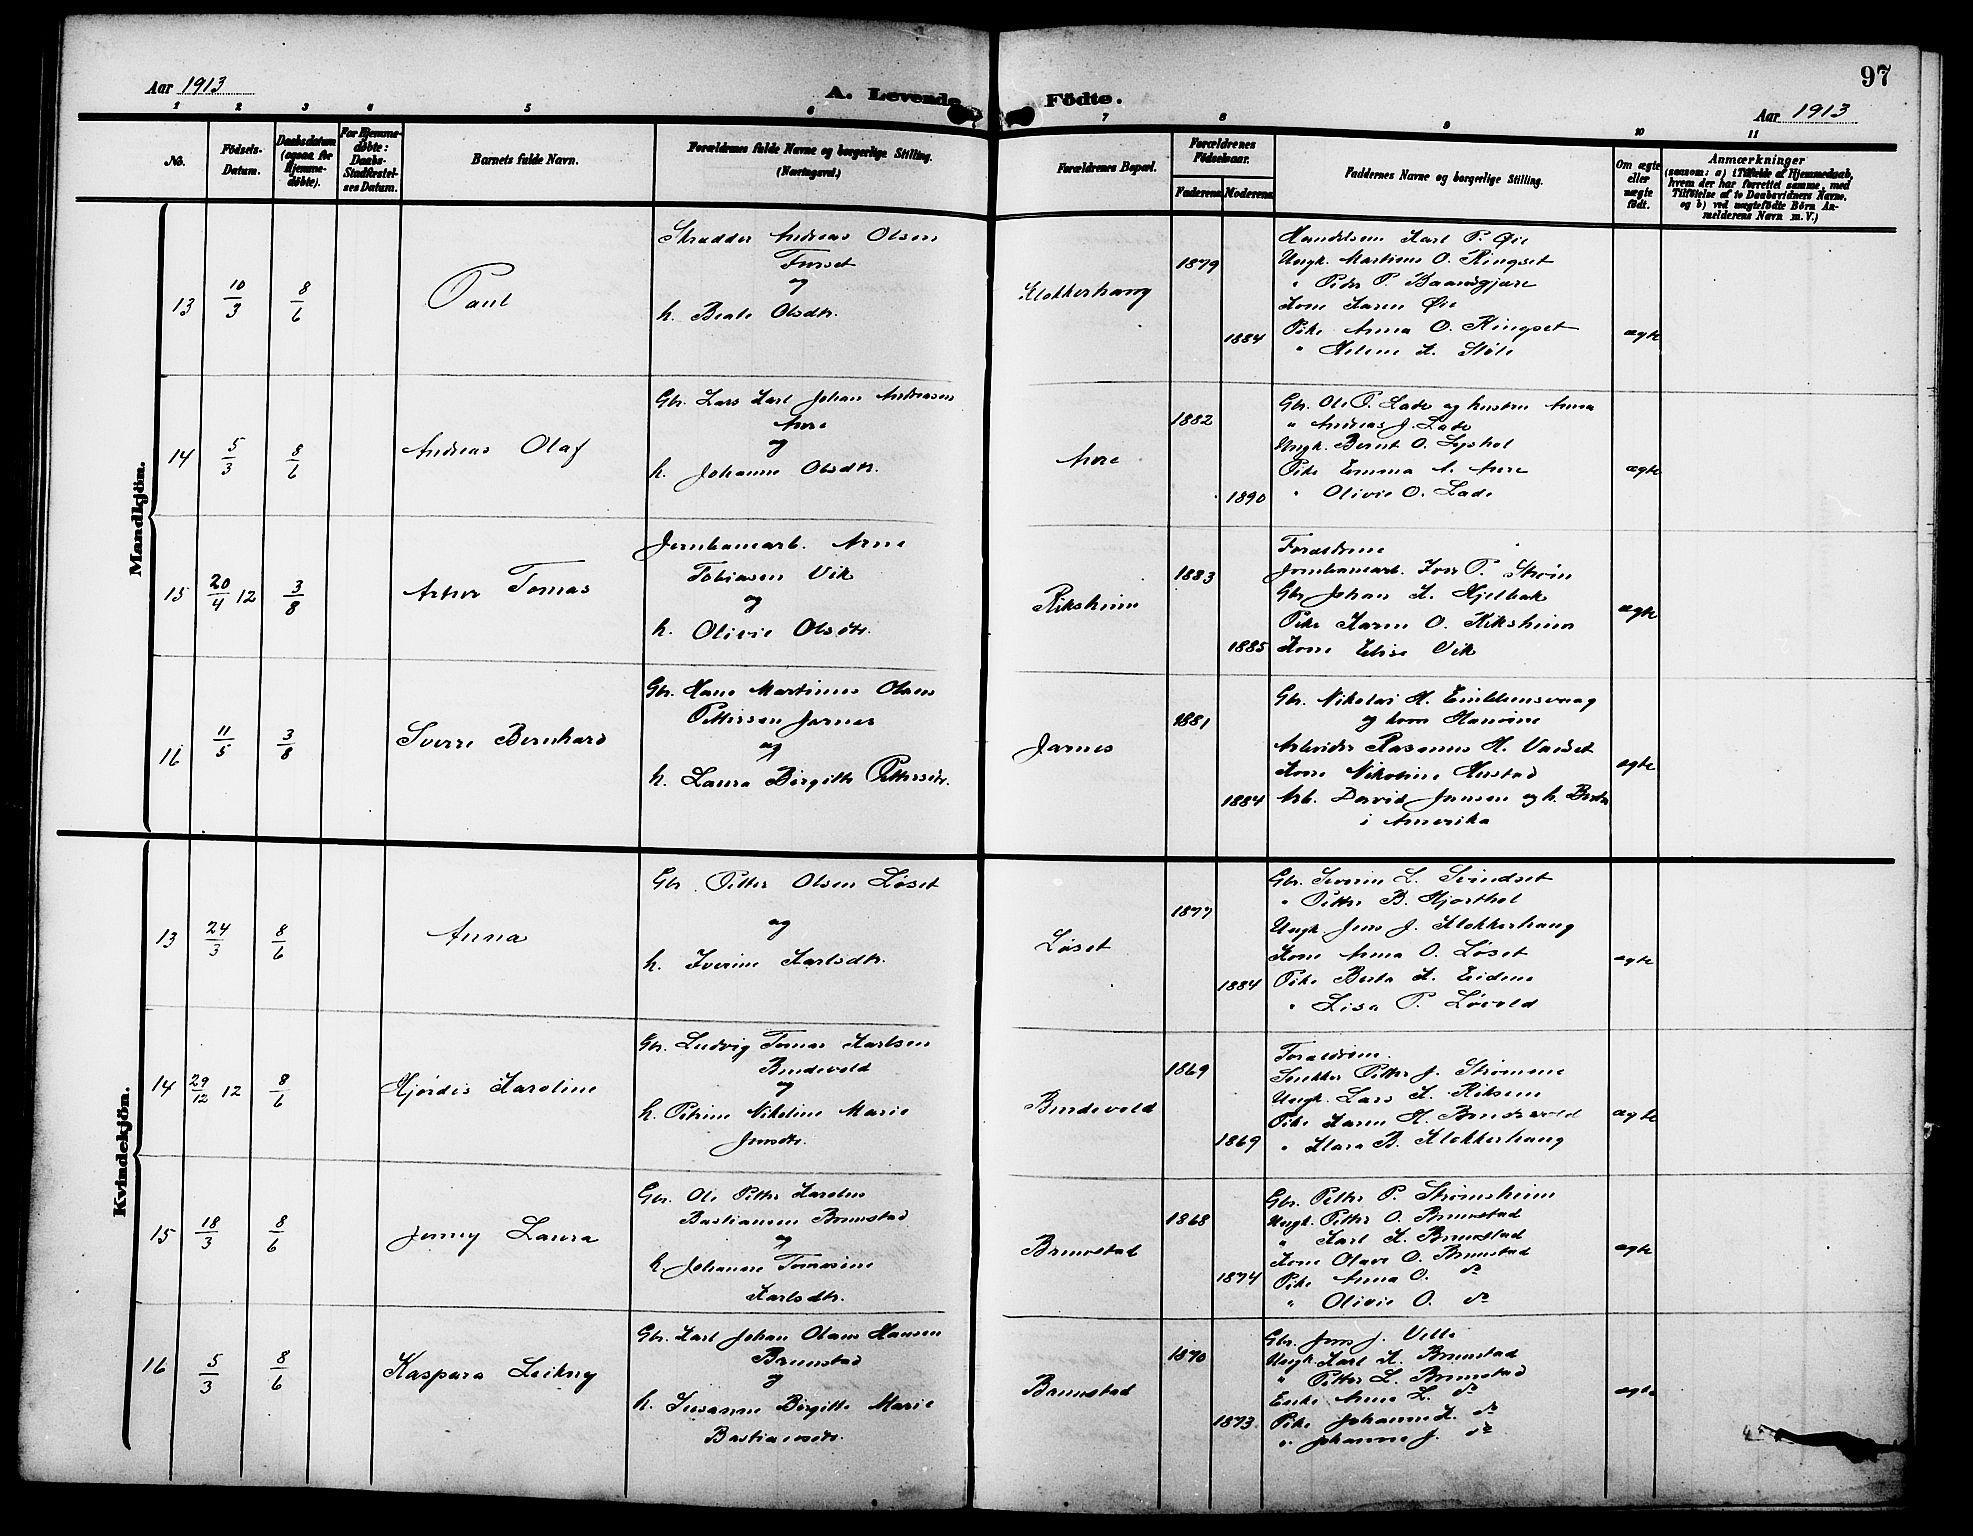 Aar 1913
A. Levende Födte.
97
Aar 1913
1 2 3 4 5 6 7 8 9 10 11
No.
Födsels-
Datum.
Daabsdatum
(ogsaa for
Hjemme-
døbte).
For Hjemme-
døbte:
Daabs-
Stadfæstel-
ses Datum.
Barnets fulde Navn.
Forældrenes fulde Navne og borgerlige Stilling.
(Næringsvei.)
Forældrenes Bopæl.
Forældrenes
Födselsaar.
Faderens
Moderens
Faddernes Navne og borgerlige Stilling.
Om ægte
eller
uægte
født.
Anmærkninger
(saasom: a) i Tilfælde af Hjemmedaab,
hvem der har forrettet samme, med
Tilföielse af to Daabsvidners Navne.
og b) ved uægtefödte Börn An-
melderens Navn m. V.)
Mandkjön.
13
10/3
8/6
Paul
Skrædder Andreas Olsen
Furset
og
h. Beate Olsdtr.
Klokkerhaug
1879
1884
Handelsm Karl P. Øie
Ungk. Martinus O. Ringset
" Peder P. Baardgjære
Kone Karen Øie
Pike Anna O. Ringset
" Helene K. Støle
ægte
14
5/3
8/6
Andreas Olaf
Gbr. Lars Karl Johan Andreasen
Aure
og
h. Johanne Olsdtr.
Aure
1882
1890
Gbr. Ole P. Lade og hustru Anna
" Andreas J. Lade
Ungk. Bernt O. Lyshol
Pike Emma A. Aure
" Olivie O. Lade
ægte
15
20/4 12
3/8
Arthur Tomas
Jernbanearb. Arne
Tobiasen Vik
og
h. Olivie Olsdtr.
Riksheim
1883
1885
Forældrene
Jernbanearb. Iver P. Strøm
Gbr Johan K. Hjelbak
Pike Karen O. Riksheim
Kone Elise Vik
ægte
16
11/5
3/8
Sverre Bernhard
Gbr. Hans Martinus Olaus
Pettersen Jarnes
og
h. Laura Birgitte Pettersdtr.
Jarnes
1881
1884
Gbr. Nikolai H. Emblemsvaag
og kone Hansine
Arbeider Rasmus H. Vadset
Kone Nikoline Hustad
Arb. David Jensen og h. Berta
i Amerika
ægte
Kvindekjön.
13
24/3
8/6
Anna
Gbr. Petter Olsen Løset
og
h. Iverine Karlsdtr.
Løset
1877
1884
Gbr. Severin L. Svindset
" Petter B. Hjorthol
Ungk Jens J. Klokkerhaug
Kone Anna O. Løset
Pike Berta K. Eidem
" Lisa P. Løvold
ægte
14
29/12 12
8/6
Hjørdis Karoline
Gbr. Ludvig Tomas Karlsen
Bredevold
og
h. Petrine Nikoline Marie
Jensdtr.
Bredevold
1869
1869
Forældrene.
Snekker Petter J. Strømme
Ungk. Lars K. Riksem
Pike Karen H. Bredevold
" Klara B. Klokkerhaug
ægte
15
18/3
8/6
Jenny Laura
Gbr. Ole Petter Karolus
Bastiansen Brunstad
og
h. Johanne Tomasine
Karlsdtr.
Brunstad
1868
1874
Gbr. Petter P. Strømsheim
Ungk. Petter O. Brunstad
" Karl K. Brunstad
Kone Olave O. Brunstad
Pike Anna O. do
" Olivie O. do
ægte
16
5/3
8/6
Kaspara Leikny
Gbr. Karl Johan Olaus Hansen
Brunstad
og
h. Susanne Birgitte Marie
Bastiansdtr.
Brunstad
1870
1873
Gbr. Jens J. Velle
Ungk. Karl K. Brunstad
" Petter L. Brunstad
Enke Anne L. do
Pike Johanne K. do
" Johanne J. do
ægte